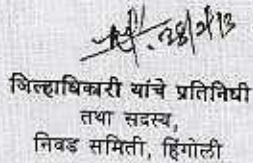 28/2/13
जिल्हाधिकारी यांचे प्रतिनिधी
तथा सदस्य,
निवड समिती, हिंगोली